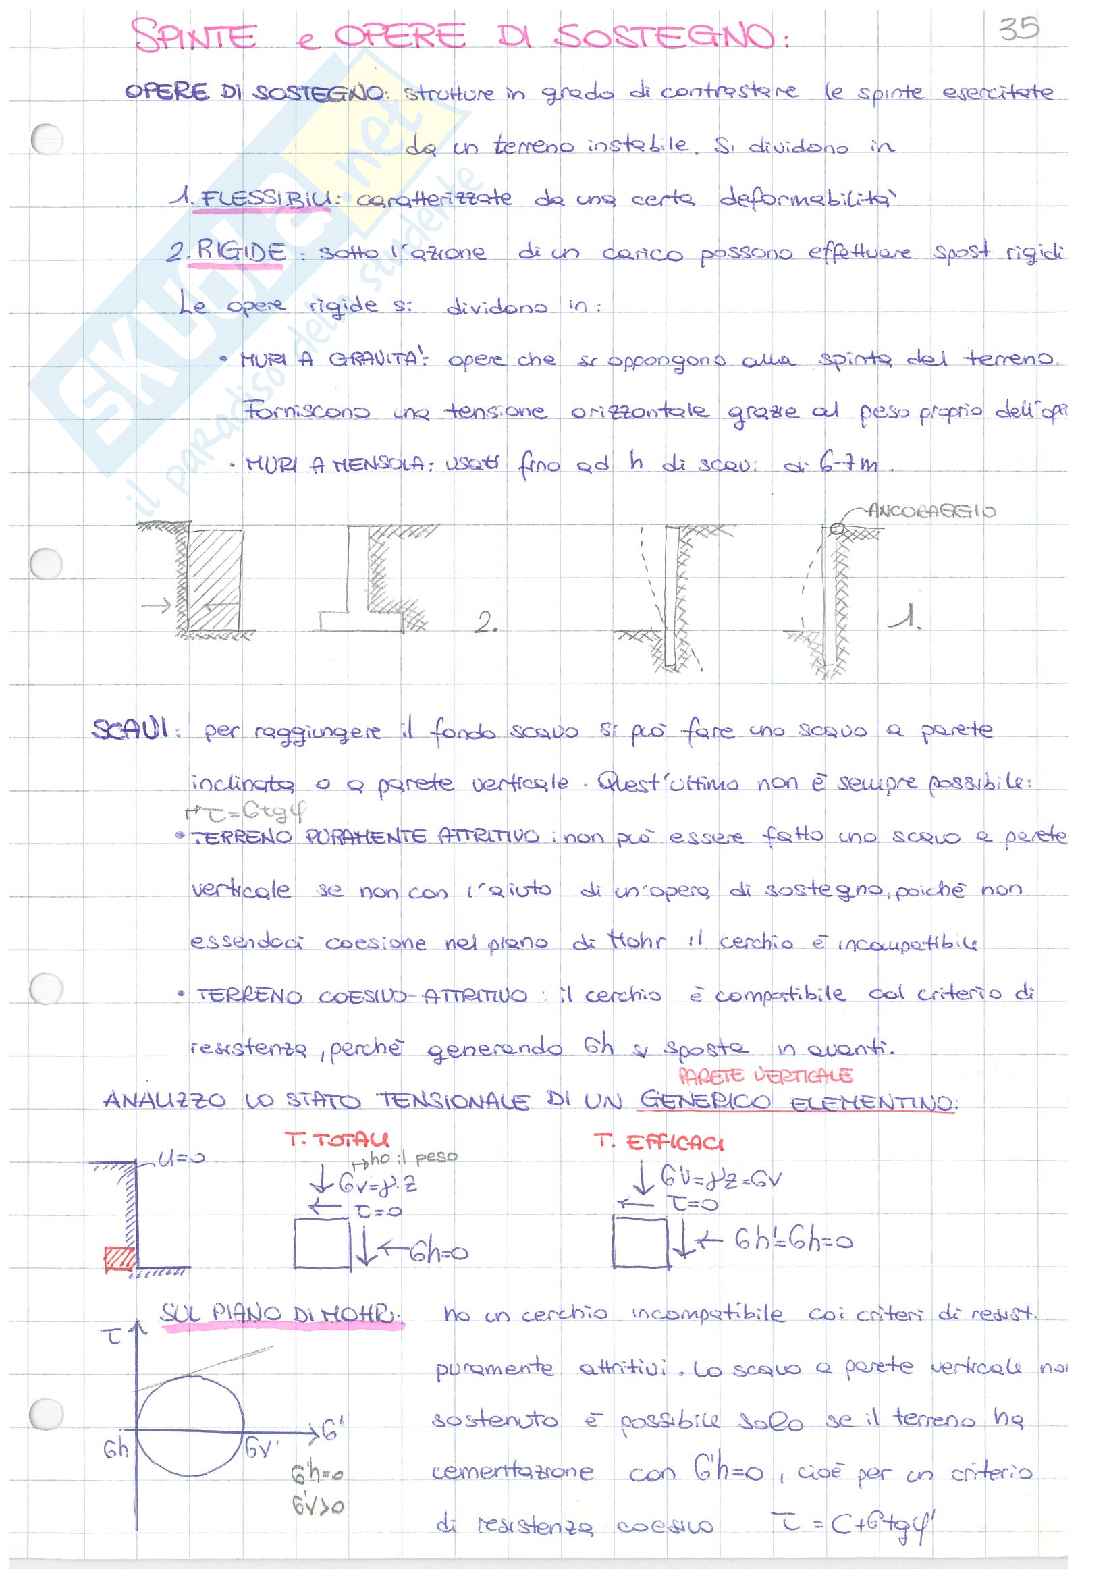 SPINTE e OPERE DI SOSTEGNO:
35
OPERE DI SOSTEGNO: strutture in grado di contrastare le spinte esercitate
da un terreno instabile. Si dividono in
1. FLESSIBILI: caratterizzate da una certa deformabilità
2. RIGIDE: sotto l'azione di un carico possono effettuare spost rigidi
Le opere rigide si dividono in:
• MURI A GRAVITA': opere che si oppongono alla spinta del terreno.
Forniscono una tensione orizzontale grazie al peso proprio dell'op
• MURI A MENSOLA: usati fino ad h di scavi di 6-7m.
ANCORAGGIO
2.
1.
SCAVI: per raggiungere il fondo scavo si può fare uno scavo a parete
inclinata o a parete verticale. Quest'ultimo non è sempre possibile:
τ=σtgφ
• TERRENO PURAMENTE ATTRITIVO: non può essere fatto uno scavo a parete
verticale se non con l'aiuto di un'opera di sostegno, poiché non
essendoci coesione nel piano di Mohr il cerchio è incompatibile
• TERRENO COESIVO-ATTRITIVO: il cerchio è compatibile col criterio di
resistenza, perché generando σh si sposta in avanti.
PARETE VERTICALE
ANALIZZO LO STATO TENSIONALE DI UN GENERICO ELEMENTINO:
T. TOTALI
T. EFFICACI
u=0
ho il peso
σv=γ·z
τ=0
σh=0
σ'v=γ'z=σv
τ=0
σh'=σh=0
SUL PIANO DI MOHR: ho un cerchio incompatibile coi criteri di resist.
puramente attritivi. Lo scavo a parete verticale non
sostenuto è possibile solo se il terreno ha
cementazione con σ'h=0, cioè per un criterio
di resistenza coesivo τ = c+σtgφ'
τ
σ'
σh
σv'
σ'h=0
σ'v>0
SKUOLA.net
il paradiso dello studente